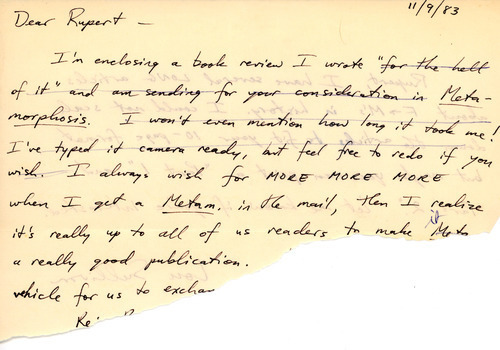 11/9/83
Dear Rupert –
I'm enclosing a book review I wrote "for the hell
of it" and am sending for your consideration in Meta-
morphosis. I won't even mention how long it took me!
I've typed it camera ready, but feel free to redo if you
wish. I always wish for MORE MORE MORE
when I get a Metam. in the mail, then I realize
it's really up to all of us readers to make it
a really good publication.
vehicle for us to exchan